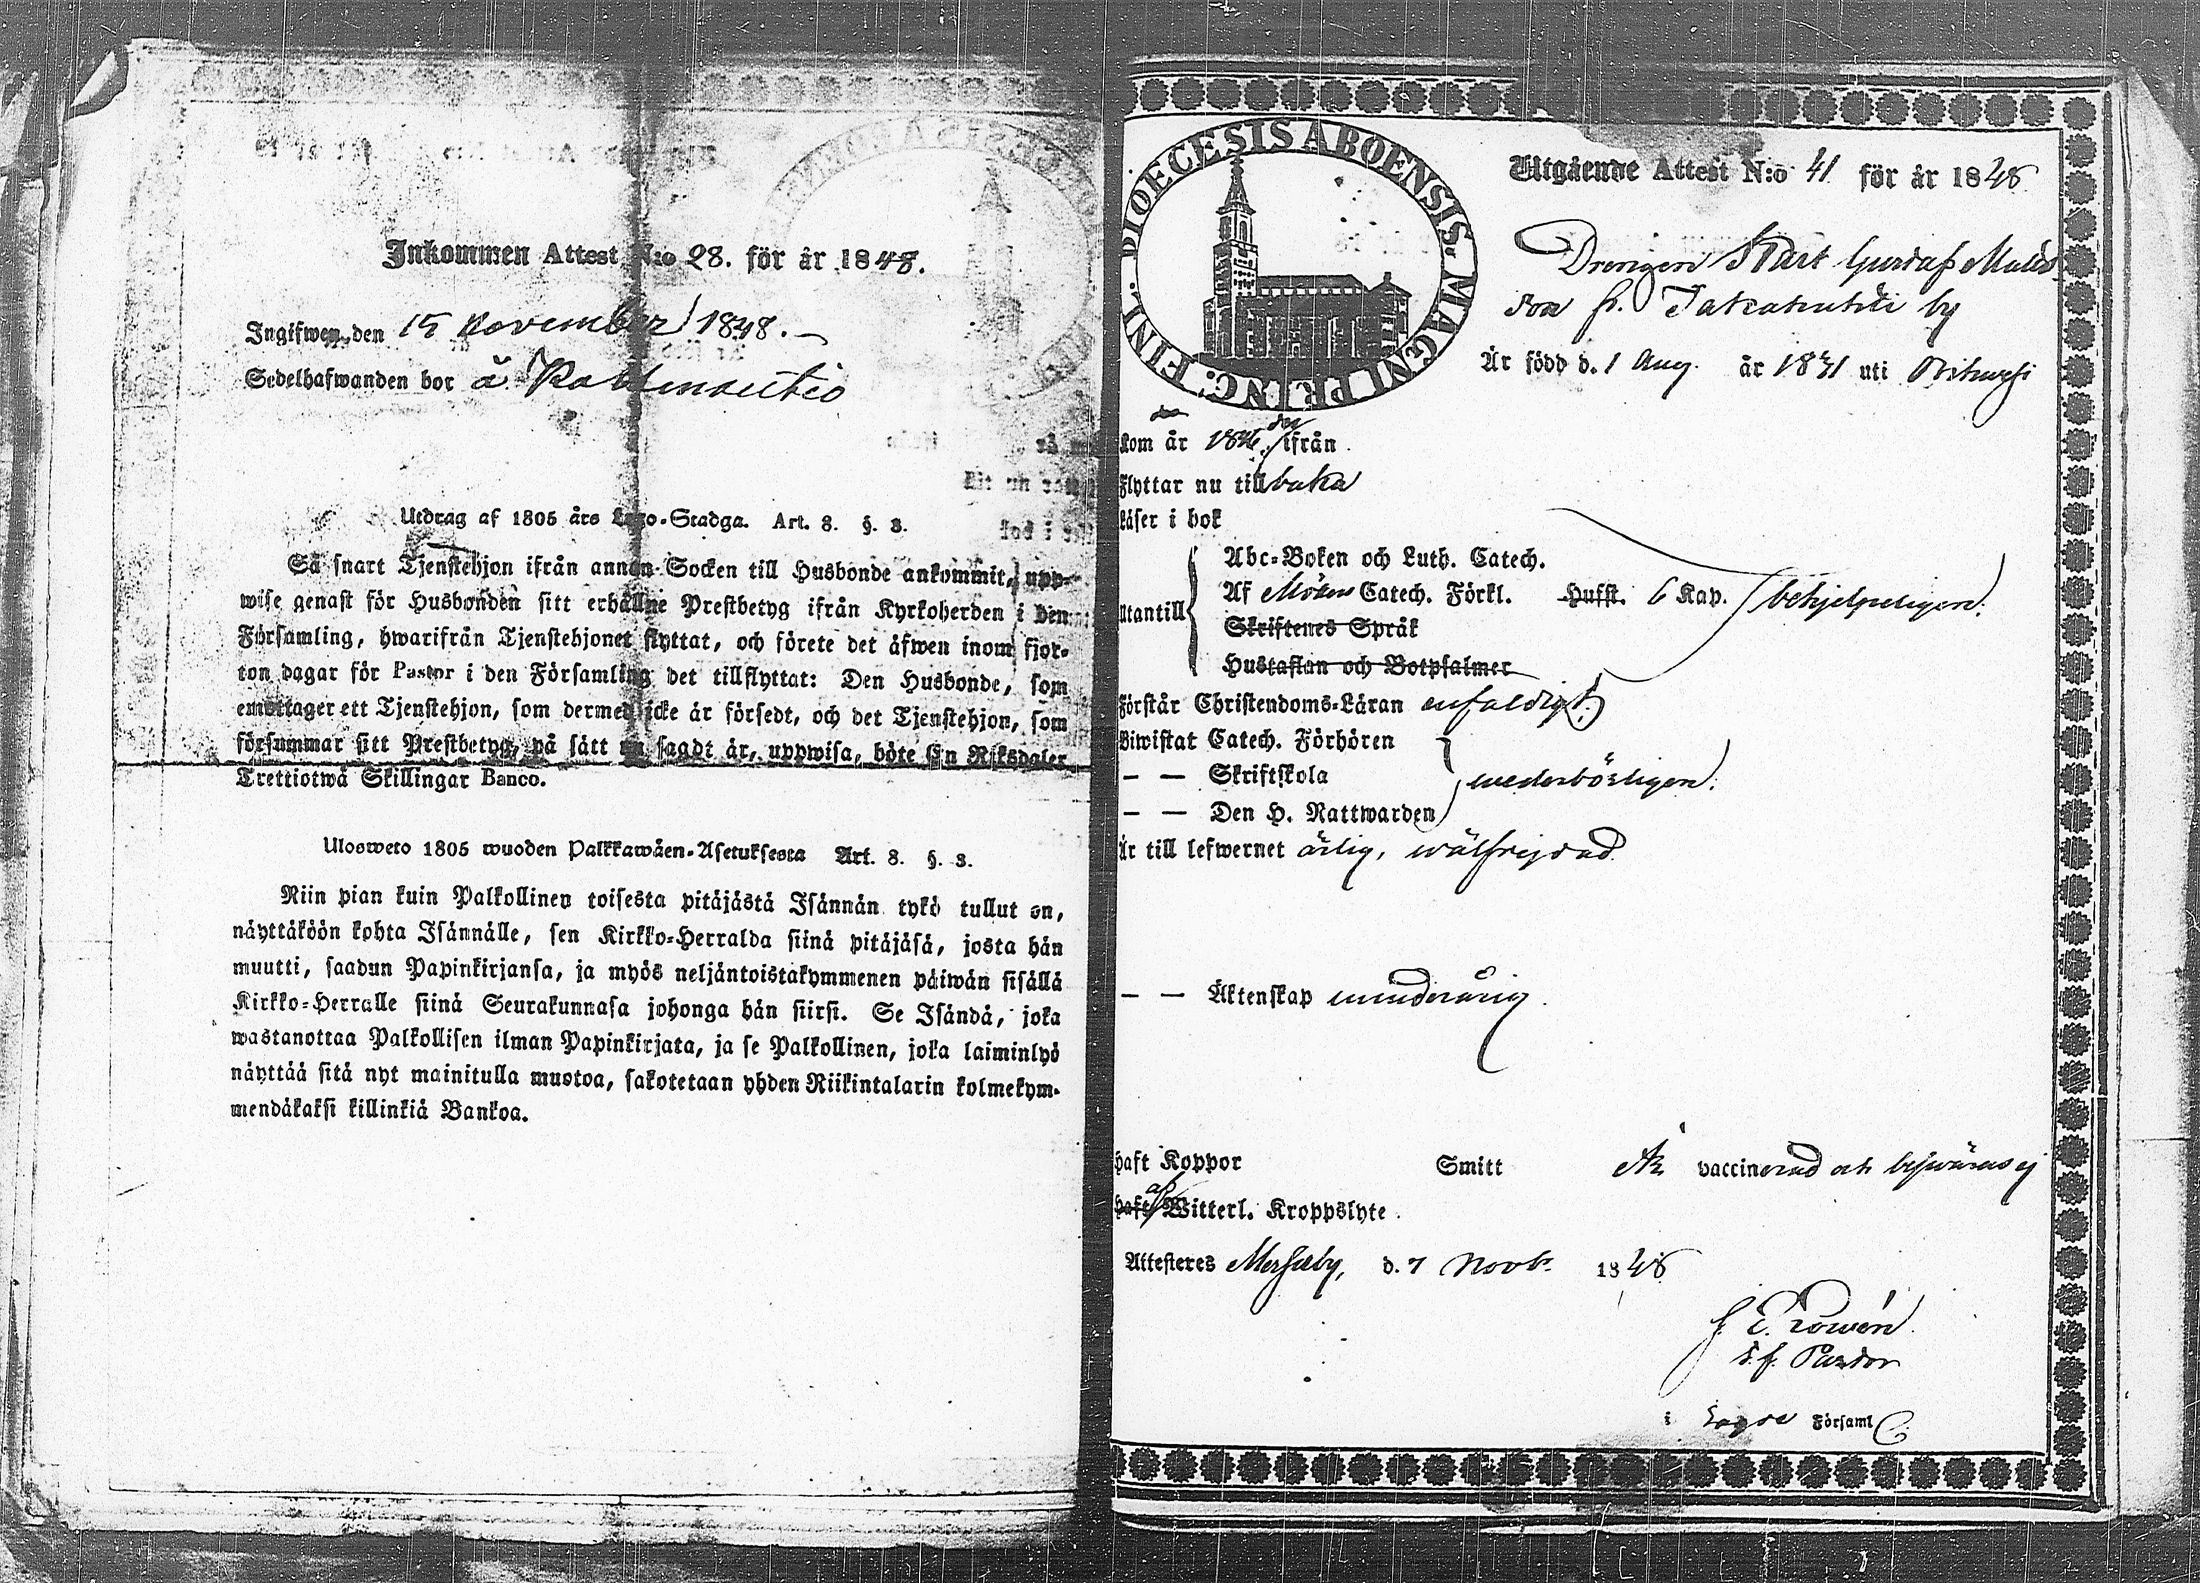 Inkommen Attest N:o 28. för år 1848.
Ingifwen den 15 november 1848. –
Sedelhafwanden bor å
Utdrag af 1805 års Lego-Stadga. Art. 8. §. 3.
Så snart Tjenstehjon ifrån annan Socken till Husbonde ankommit, upp-
wise genast för Husbonden sitt erhållne Prestbetyg ifrån Kyrkoherden i den
Församling, hwarifrån Tjenstehjonet flyttat, och förete det äfwen inom fjor-
ton dagar för Pastor i den Församling det tillflyttat: Den Husbonde, som
emottager ett Tjenstehjon, som dermed icke är försedt, och det Tjenstehjon, som
försummar sitt Prestbetyg, på sätt nu sagdt är, uppwisa, böte En Riksdaler
Trettiotwå Skillingar Banco.
Ulosweto 1805 wuoden Palkkawäen-Asetuksesta Art. 8. §. 3.
Niin pian kuin Palkollinen toisesta pitäjästä Isännän tykö tullut on,
näyttäköön kohta Isännälle, sen Kirkko-Herralda siinä pitäjäsä, josta hän
muutti, saadun Papinkirjansa, ja myös neljäntoistakymmenen päiwän sisällä
Kirkko-Herralle siinä Seurakunnasa johonga hän siirsi. Se Isändä, joka
wastanottaa Palkollisen ilman Papinkirjata, ja se Palkollinen, joka laiminlyö
näyttää sitä nyt mainitulla muotoa, sakotetaan yhden Riikintalarin kolmekym-
mendäkaksi killinkiä Bankoa.
DIOECESIS ABOENSIS. MAGNI PRINC. FINL.
Utgående Attest N:o 41 för år 1848
Drengen Gustaf Matts
son fr. by
Är född d. 1 Aug. år 1831 uti
kom år ifrån
Flyttar nu tillbaka
Läser i bok
Abc-Boken och Luth. Catech.
Utantill Af Catech. Förkl. Hufst. 6 Kap. behjelpeligen.
Skriftenes Språk
Hustaflan och Botpsalmer
Förstår Christendoms-Läran enfaldigt.
Biwistat Catech. Förhören
— — Skriftskola wederbörligen.
— — Den H. Nattwarden
Är till lefwernet ärlig, wälfrejdad
— — Äktenskap minderårig.
Haft Koppor Smitt Är vaccinerad och beswäras ej
Haft af Witterl. Kroppslyte.
Attesteres d. 7 Novb. 1848
J. E. Rowén
v. f. Pastor
i Församl